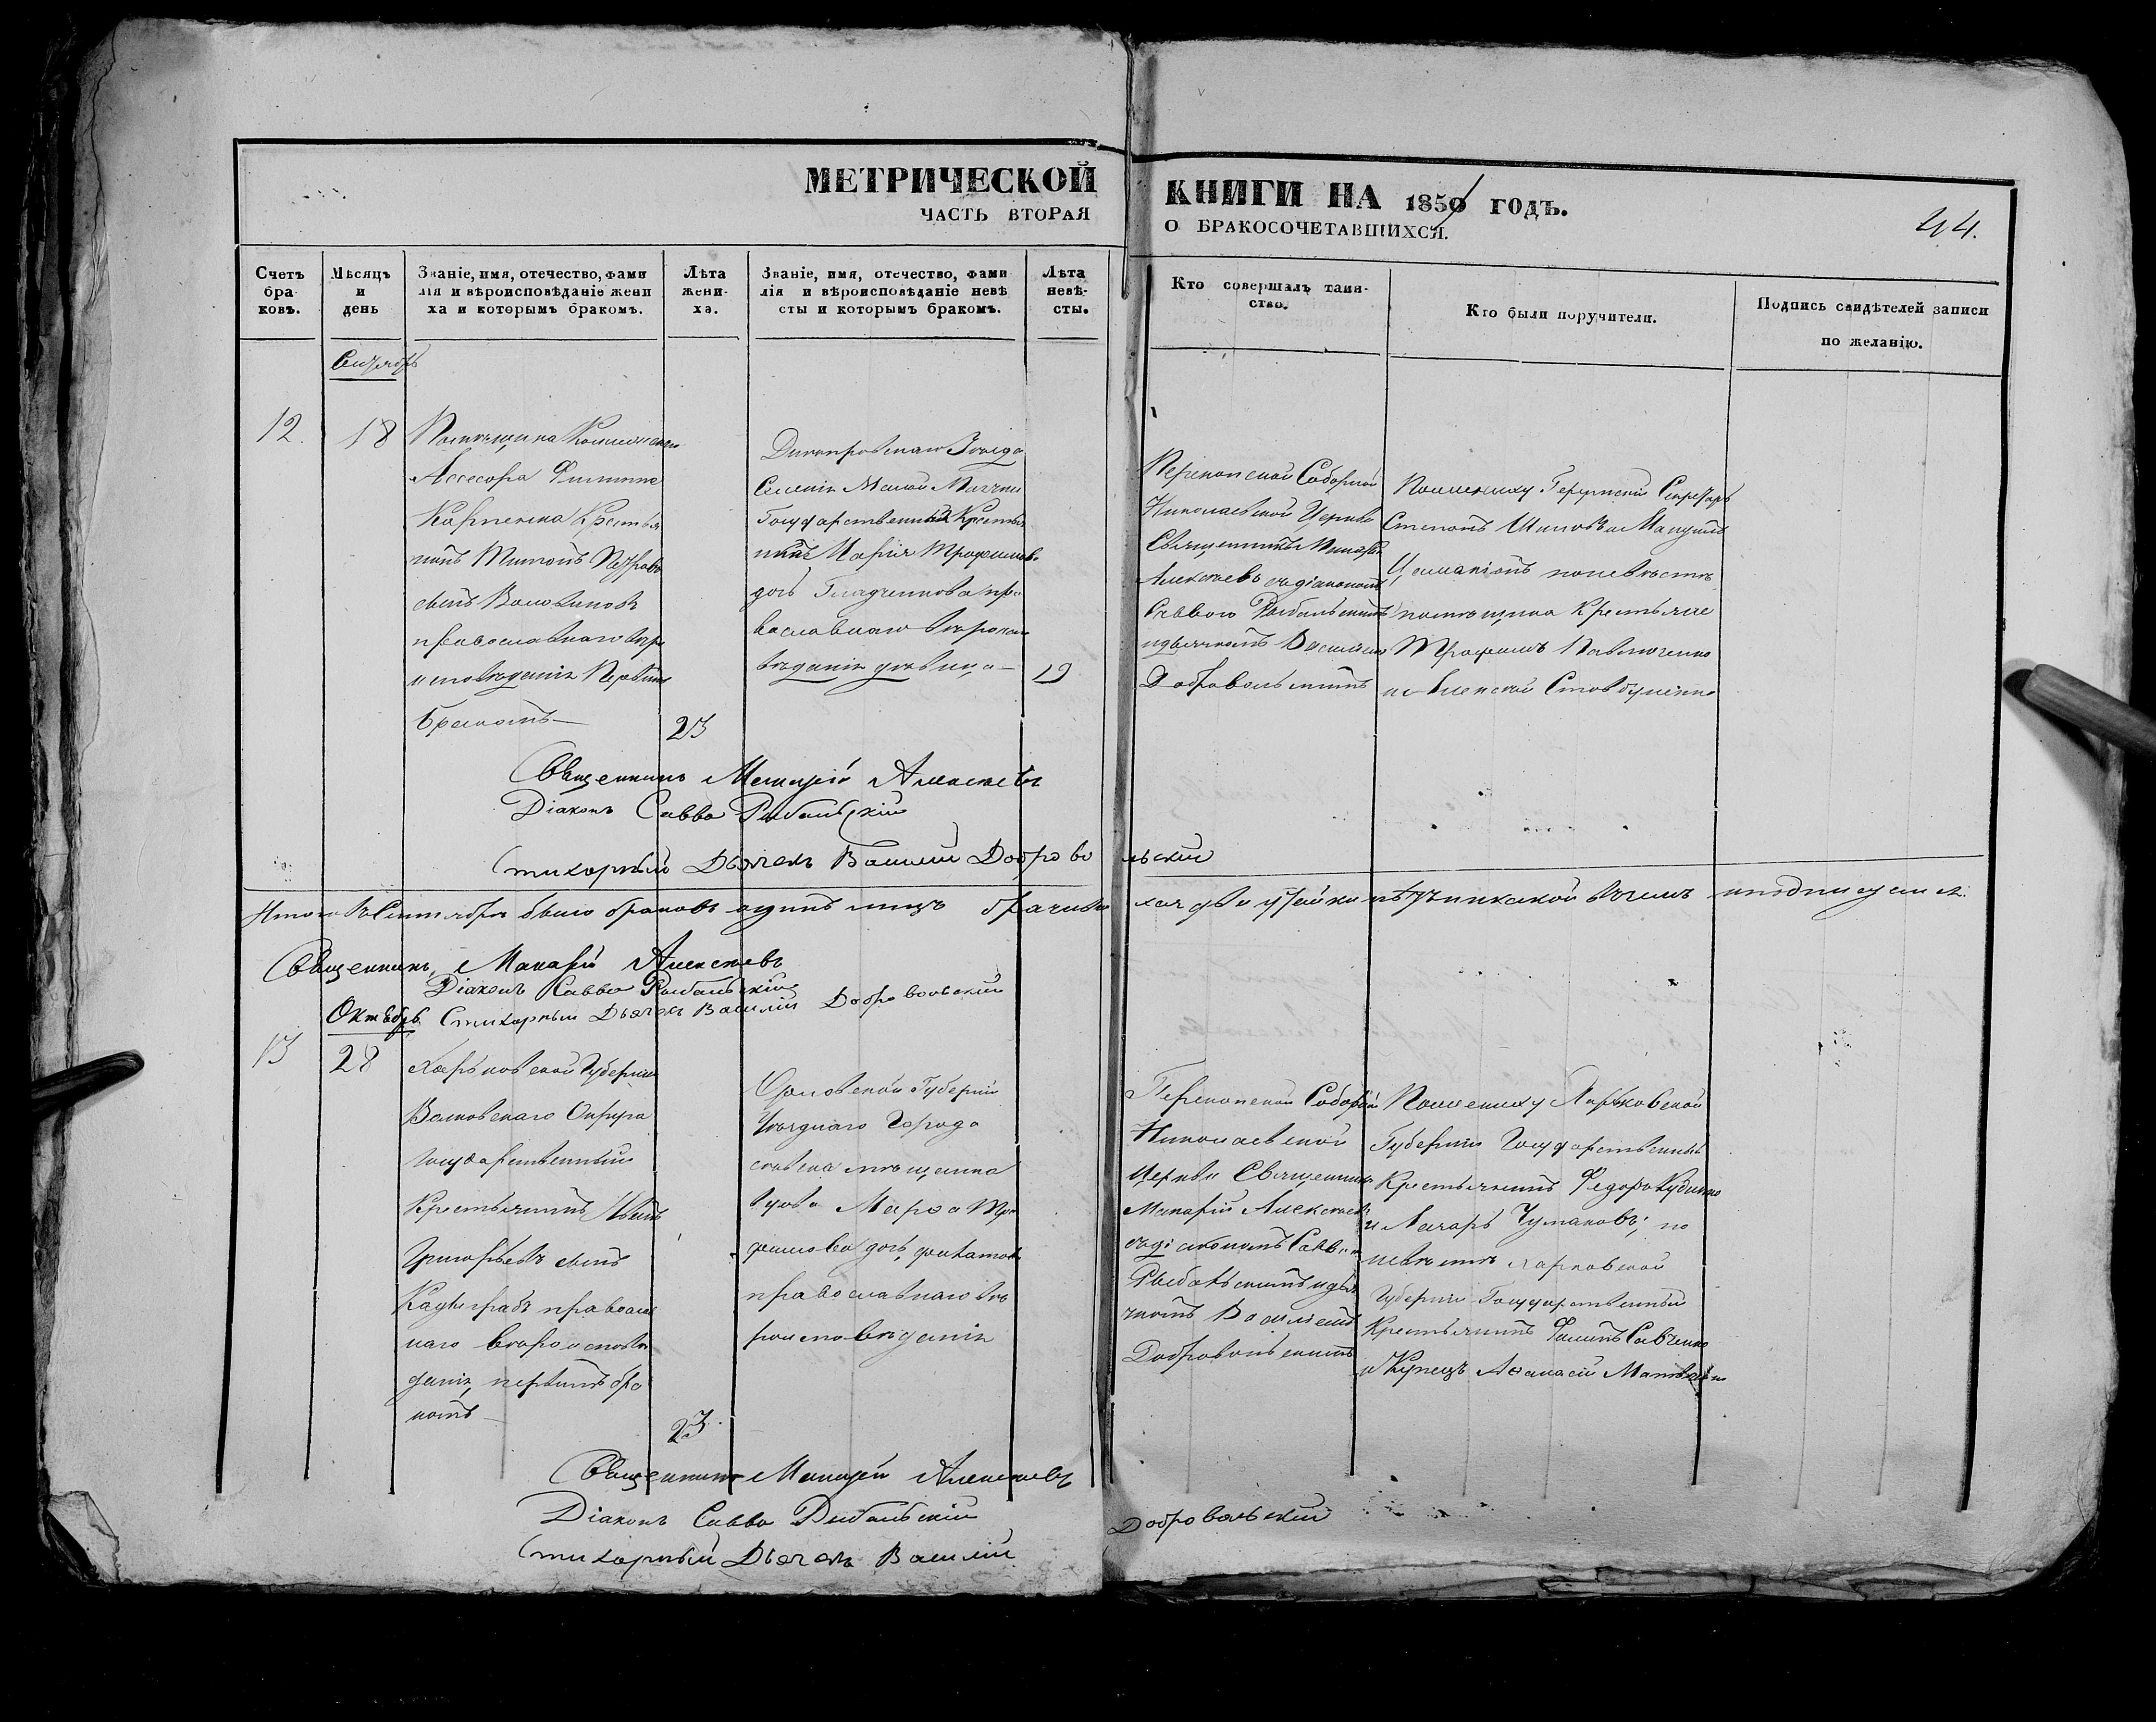 МЕТРИЧЕСКОЙ КНИГИ НА 1850 ГОДЪ.
ЧАСТЬ ВТОРАЯ О БРАКОСОЧЕТАВШИХСЯ.
44.
Счетъ
бра
ковъ.
Мѣсяцъ
и
день
Званіе, имя, отечество, фами
лія и вѣроисповѣданіе жени
ха и которымъ бракомъ.
Лѣта
жени-
ха.
Званіе, имя, отечество, фами
лія и вѣроисповѣданіе невѣ
сты и которымъ бракомъ.
Лѣта
невѣ-
сты.
Кто совершалъ таин-
ство.
Кто были поручители.
Подпись свидѣтелей записи
по желанію.
Сентябрь
12.
18
Помѣщика
Ассесора Филиппа
Карпенка Крестья
нинъ Петровъ
сынъ
православнаго вѣро
исповѣданія Первымъ
бракомъ
23
Днѣпровскаго Уѣзда
Селенія Малой Маячки
Государственный Крестья
Марія Трофимов.
дочь пра
вославнаго вѣроиспо
вѣданія дѣвица
19
Перекопской Соборной
Николаевской Церкви
Священникъ Макарій
Алексѣевъ съ діакономъ
Саввою Рыбальскимъ
и дьячкомъ Василіемъ
Добровольскимъ
По жениху Губернскій Секретарь
Степанъ
по невѣстѣ
помѣщика Крестьяне
Трофимъ Павлюченко
и Алексѣй
Священникъ Макарій Алексѣевъ
Діаконъ Савва Рыбальскій
Стихарный Дьячекъ Василій Добровольскій
Итого въ Сентябрѣ было браковъ одинъ лицъ
Священникъ Макарій Алексѣевъ
Діаконъ Савва Рыбальскій
Октябрь Стихарный Дьячекъ Василій Добровольскій
13
28
Харьковской Губерніи
Валковскаго Округа
Государственный
Крестьянинъ
Григорьевъ сынъ
православ
наго вѣроисповѣ
данія, первымъ бра
комъ
23
Орловской Губерніи
Уѣзднаго Города
мѣщанка
вдова Марѳа Тро
фимова дочь,
православнаго вѣ
роисповѣданія
Перекопской Соборной
Николаевской
Церкви Священникъ
Макарій Алексѣевъ
съ діакономъ Саввою
Рыбальскимъ и дья
чкомъ Василіемъ
Добровольскимъ
По жениху Харьковской
Губерніи Государственный
Крестьянинъ Федоръ
и Чумаковъ; по
невѣстѣ Харьковской
Губерніи Государственный
Крестьянинъ Савченко
и Купецъ Аѳанасій
Священникъ Макарій Алексѣевъ
Діаконъ Савва Рыбальскій
Стихарный Дьячекъ Василій Добровольскій